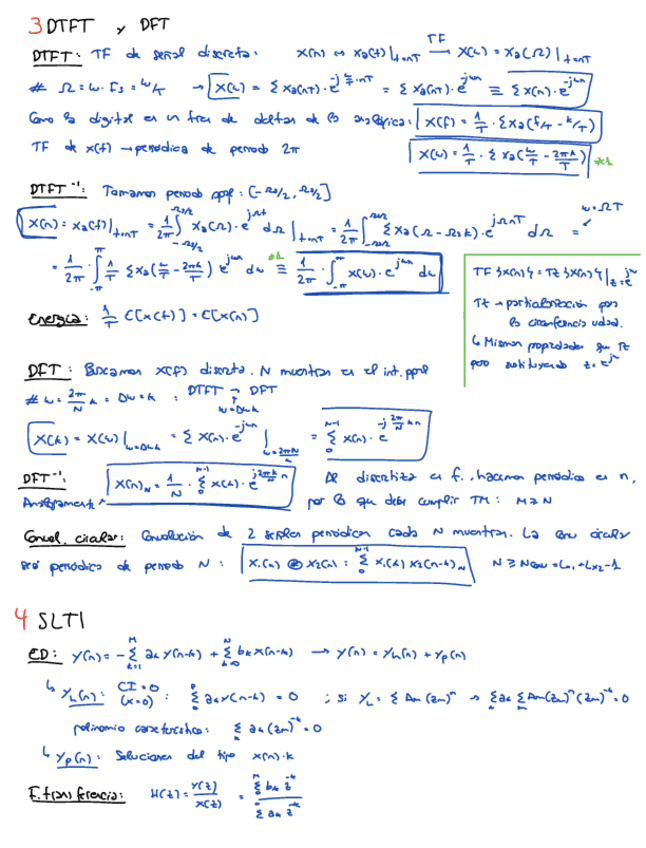 3 DTFT y DFT
DTFT: TF de señal discreta: x(n) ↔ xa(t)|t=nT —TF→ X(ω) = Xa(Ω)|t=nT
# Ω = ω·Fs = ω/T → X(ω) = Σ xa(nT)·e^{-j ω/T·nT} = Σ xa(nT)·e^{-jωn} ≡ Σ x(n)·e^{-jωn}
Como la digital es un tren de deltas de la analógica: X(f) = 1/T · Σ Xa(f/T - k/T)
TF de x(t) → periódica de periodo 2π X(ω) = 1/T · Σ Xa(ω/T - 2πk/T) *1
DTFT⁻¹: Tomamos periodo ppal: [-Ωs/2, Ωs/2]
x(n) = xa(t)|t=nT = 1/2π ∫_{-Ωs/2}^{Ωs/2} Xa(Ω)·e^{jΩt} dΩ |t=nT = 1/2π ∫_{-Ωs/2}^{Ωs/2} Σ Xa(Ω - Ωs k)·e^{jΩnT} dΩ = ω=ΩT
= 1/2π · ∫_{-π}^{π} 1/T Σ Xa(ω/T - 2πk/T) e^{jωn} dω ≡ *1 1/2π · ∫_{-π}^{π} X(ω)·e^{jωn} dω
TF{x(n)} = TZ{x(n)}|z=e^{jω}
TZ → particularización para
la circunferencia unidad.
↳ Mismas propiedades que TZ
pero sustituyendo z=e^{jω}
Energía: 1/T E[x(t)] = E[x(n)]
DFT: Buscamos X(f) discreta. N muestras en el int. ppal
# ω = 2π/N k = Δω·k : DTFT → DFT ω=Δωk
X(k) = X(ω)|ω=Δωk = Σ x(n)·e^{-jωn}|ω=2πk/N = Σ_0^{N-1} x(n)·e^{-j 2π/N kn}
DFT⁻¹: Análogamente x(n)_N = 1/N · Σ_0^{N-1} X(k)·e^{j 2πk/N n} Al discretizar en f., hacemos periódica en n,
por lo que debe cumplir TM: M≥N
Convol. circular: Convolución de 2 señales periódicas cada N muestras. La conv circular
será periódica de periodo N: x1(n) ⊛ x2(n) : Σ_0^{N-1} x1(k) x2(n-k)_N N ≥ Nconv = Lx1 + Lx2 - 1
4 SLTI
ED: y(n) = -Σ_{k=1}^{M} ak y(n-k) + Σ_{k=0}^{N} bk x(n-k) → y(n) = yh(n) + yp(n)
↳ yh(n): CI=0 (x=0) : Σ ak y(n-k) = 0 ; si yh = Σ Am (zm)^n → Σ ak Σ Am (zm)^n (zm)^{-k} = 0
polinomio característico: Σ ak (zm)^{-k} = 0
↳ yp(n): Soluciones del tipo x(n)·k
F. transferencia: H(z) = Y(z)/X(z) = Σ bk z^{-k} / Σ ak z^{-k}